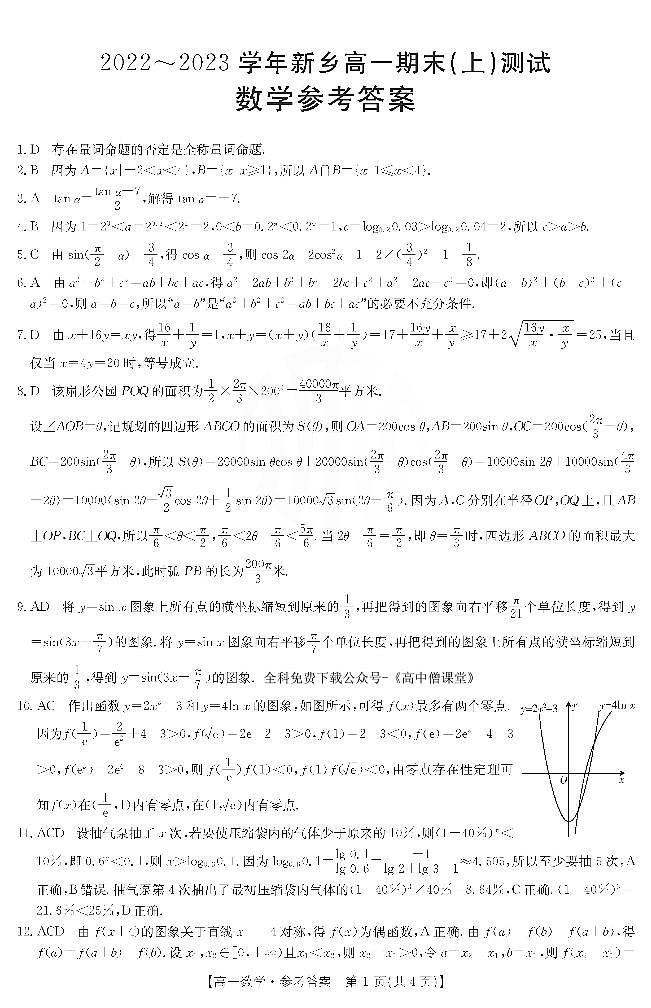 2022～2023 学年新乡高一期末(上)测试
数学参考答案
1. D 存在量词命题的否定是全称量词命题.
2. B 因为 A={x|-2<x<4},B={x|x≥1},所以 A∩B={x|1≤x<4}.
3. A tan α=(tan α-7)/2,解得 tan α=-7.
4. B 因为 1=2⁰<a< <2¹=2,0<b=0.2 <0.2⁰=1,c=log₀.₂0.03>log₀.₂0.04=2,所以 c>a>b.
5. C 由 sin(π/2-α)=3/4,得 cos α=3/4,则 cos 2α=2cos²α-1=2×(3/4)²-1=1/8.
6. A 由 a²+b²+c²=ab+bc+ac,得 a²-2ab+b²+b²-2bc+c²+a²-2ac+c²=0,即(a-b)²+(b-c)²+(c-
a)²=0,则 a=b=c,所以“a=b”是“a²+b²+c²=ab+bc+ac”的必要不充分条件.
7. D 由 x+16y=xy,得16/x+1/y=1,x+y=(x+y)(16/x+1/y)=17+16y/x+x/y≥17+2√(16y/x·x/y)=25,当且
仅当 x=4y=20 时,等号成立.
8. D 该扇形公园 POQ 的面积为1/2×2π/3×200²=40000π/3平方米.
设∠AOB=θ,记规划的四边形 ABCO 的面积为 S(θ),则 OA=200cos θ,AB=200sin θ,OC=200cos(2π/3-θ),
BC=200sin(2π/3-θ),所以 S(θ)=20000sin θcos θ+20000sin(2π/3-θ)cos(2π/3-θ)=10000sin 2θ+10000sin(4π/3
-2θ)=10000(sin 2θ-√3/2cos 2θ+1/2sin 2θ)=10000√3sin(2θ-π/6). 因为 A,C 分别在半径 OP,OQ 上,且 AB
⊥OP,BC⊥OQ,所以π/6<θ<π/2,π/6<2θ-π/6<5π/6. 当 2θ-π/6=π/2,即 θ=π/3时,四边形 ABCO 的面积最大
为 10000√3平方米,此时弧 PB 的长为200π/3米.
9. AD 将 y=sin x 图象上所有点的横坐标缩短到原来的1/3,再把得到的图象向右平移π/21个单位长度,得到 y
=sin(3x-π/7)的图象. 将 y=sin x 图象向右平移π/7个单位长度,再把得到的图象上所有点的横坐标缩短到
原来的1/3,得到 y=sin(3x-π/7)的图象. 全科免费下载公众号-《高中僧课堂》
10. AC 作出函数 y=2x²-3 和 y=4ln x 的图象,如图所示,可得 f(x)最多有两个零点.
因为 f(1/e)=2/e²+4-3>0,f(√e)=2e-2-3>0,f(1)=2-3<0,f(e)=2e²-4-3
>0,f(e²)=2e⁴-8-3>0,则 f(1/e)f(1)<0,f(1)f(√e)<0,由零点存在性定理可
知 f(x)在(1/e,1)内有零点,在(1,√e)内有零点.
y=2x²-3
y
y=4ln x
O
x
11. ACD 设抽气泵抽了 x 次,若要使压缩袋内的气体少于原来的 10%,则(1-40%)ˣ<
10%,即 0.6ˣ<0.1,则 x>log₀.₆0.1. 因为 log₀.₆0.1=lg 0.1/lg 0.6=-1/(lg 2+lg 3-1)≈4.505,所以至少要抽 5 次,A
正确,B 错误. 抽气泵第 4 次抽出了最初压缩袋内气体的(1-40%)³×40%=8.64%,C 正确. (1-40%)³=
21.6%<25%,D 正确.
12. ACD 由 f(x+4)的图象关于直线 x=-4 对称,得 f(x)为偶函数,A 正确. 由 f(a)-f(b)=f(a+b),得
f(a)=f(a+b)+f(b). 设 x₁,x₂∈[0,+∞)且 x₁<x₂,则 x₂-x₁>0,令 a=x₂-x₁,b=x₁,则 f(x₂-x₁)=
【高一数学·参考答案 第 1 页(共 4 页)】